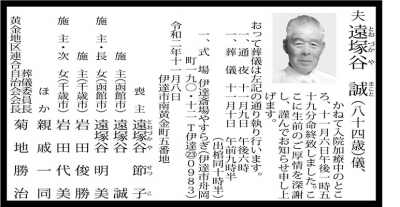 夫 遠塚谷 誠(八十四歳)儀
とおつかや まこと
かねて入院加療中のとこ
ろ、十一月六日午後一時五
十九分命終致しました。こ
こに生前のご厚情を深謝
し、謹んでお知らせ申し上
げます。
おって葬儀は左記の通り執り行います。
一、通夜 十一月九日 午後六時
一、葬儀 十一月十日 午前九時半
(出棺同十時半)
一、式場 伊達斎場やすらぎ(伊達市舟岡
町一九〇・一二 T伊達㉓0983)
令和二年十一月八日
伊達市南黄金町五番地
喪主 遠塚谷 節子
とおつかや せつこ
施主(函館市) 遠塚谷 誠
遠塚谷 明美
施主(千歳市) 岩田俊勝
施主・次女(千歳市) 岩田代美
ほか 親戚一同
葬儀委員長
黄金地区連合自治会会長 菊地勝治